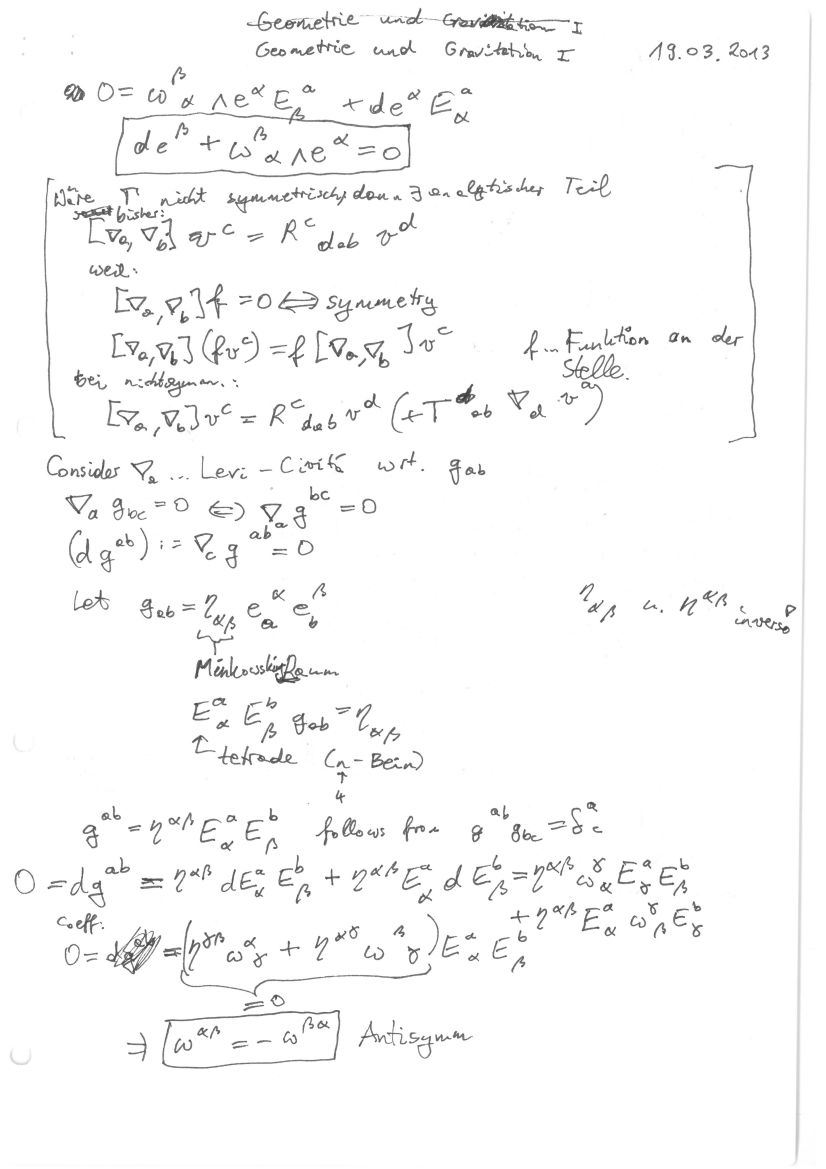 Geometrie und Gravitation I
Geometrie und Gravitation I 19.03.2013
0 = ω^β_α ∧ e^α E_β^a + de^α E_α^a
de^β + ω^β_α ∧ e^α = 0
Wäre Γ nicht symmetrisch, dann ∃ Teil
bisher:
[∇_a, ∇_b] v^c = R^c_dab v^d
weil:
[∇_a, ∇_b] f = 0 ⟺ symmetry
[∇_a, ∇_b] (f v^c) = f [∇_a, ∇_b] v^c f ... Funktion an der
Stelle.
bei nichtsymm.:
[∇_a, ∇_b] v^c = R^c_dab v^d (+ T^d_ab ∇_d v^a)
Consider ∇_a ... Levi-Civitá wrt. g_ab
∇_a g_bc = 0 ⟺ ∇_a g^bc = 0
(dg^ab) := ∇_c g^ab = 0
Let g_ab = η_αβ e_a^α e_b^β η_αβ u. η^αβ invers
MinkowskiRaum
E_α^a E_β^b g_ab = η_αβ
↑ tetrade (n-Bein)
↑
4
g^ab = η^αβ E_α^a E_β^b follows from g^ab g_bc = δ_c^a
0 = dg^ab = η^αβ dE_α^a E_β^b + η^αβ E_α^a dE_β^b = η^αβ ω_α^γ E_γ^a E_β^b
+ η^αβ E_α^a ω^γ_β E_γ^b
Coeff.
0 = (η^γβ ω^α_γ + η^αγ ω^β_γ) E_α^a E_β^b
= 0
⇒ ω^αβ = - ω^βα Antisymm